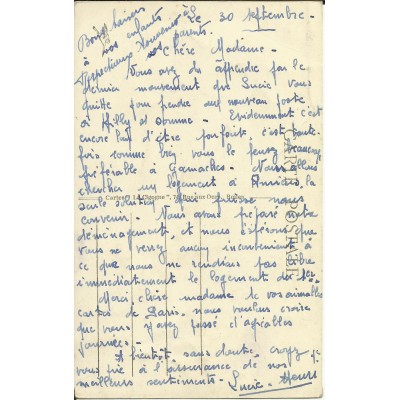 Le 30 septembre -
Bons baisers
à vos enfants
respectueux
parents.
Chère Madame -
Vous avez dû apprendre par le
dernier mouvement que Lucie vous
quitte pour prendre un nouveau poste
à Ailly s/ Somme - Evidemment c'est
encore loin d'être parfait, c'est toute-
fois comme bien vous le pensez beaucoup
préférable à Gamaches - Nous allons
chercher un logement à Amiens, la
seule solution qui puisse nous
convenir - Nous avons préparé notre
déménagement, et nous espérons que
vous ne verrez aucun inconvénient à
ce que nous ne rendions pas libre
immédiatement le logement
Merci chère madame de vos aimables
cartes de Paris - nous voulons croire
que vous y avez passé d'agréables
journées -
A bientôt, sans doute, croyez je
vous prie à l'assurance de nos
meilleurs sentiments - Lucie -
CARTE POSTALE
"La Cigogne"